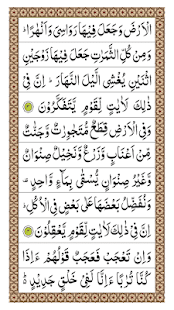 الْاَرْضَ وَجَعَلَ فِيْهَا رَوَاسِيَ وَاَنْهٰرًاؕ
وَمِنْ كُلِّ الثَّمَرٰتِ جَعَلَ فِيْهَا زَوْجَيْنِ
اثْنَيْنِ يُغْشِى الَّيْلَ النَّهَارَؕ اِنَّ فِيْ
ذٰلِكَ لَاٰيٰتٍ لِّقَوْمٍ يَّتَفَكَّرُوْنَ
وَفِى الْاَرْضِ قِطَعٌ مُّتَجٰوِرٰتٌ وَّجَنّٰتٌ
مِّنْ اَعْنَابٍ وَّزَرْعٌ وَّنَخِيْلٌ صِنْوَانٌ
وَّغَيْرُ صِنْوَانٍ يُّسْقٰى بِمَآءٍ وَّاحِدٍ
وَنُفَضِّلُ بَعْضَهَا عَلٰى بَعْضٍ فِى الْاُكُلِؕ
اِنَّ فِيْ ذٰلِكَ لَاٰيٰتٍ لِّقَوْمٍ يَّعْقِلُوْنَ
وَاِنْ تَعْجَبْ فَعَجَبٌ قَوْلُهُمْ ءَاِذَا
كُنَّا تُرٰبًا ءَاِنَّا لَفِيْ خَلْقٍ جَدِيْدٍ